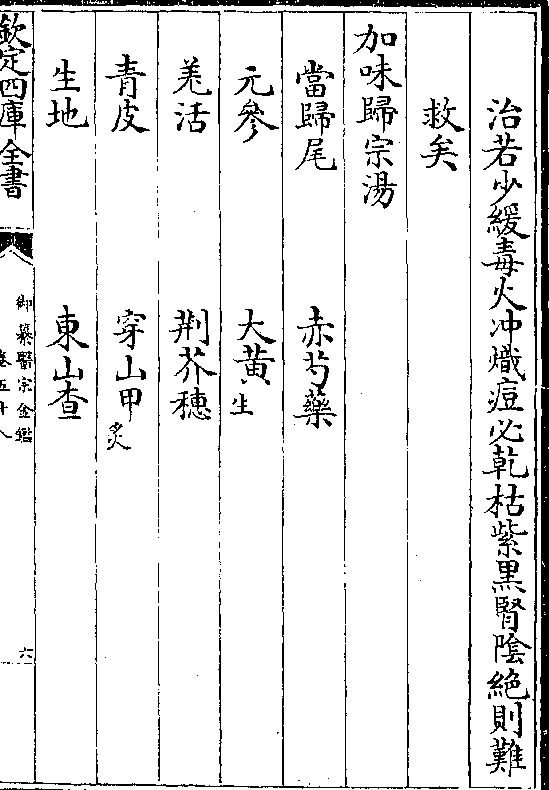 治若少緩毒火冲熾痘必乾枯紫黒腎隂絶則難
救矣
加味歸宗湯
當歸尾　赤芍藥
元參　大黄生
羗活　荆芥穗
青皮　穿山甲炙
生地　東山查
欽定四庫全書
御纂醫宗金鑑
卷五十八
六